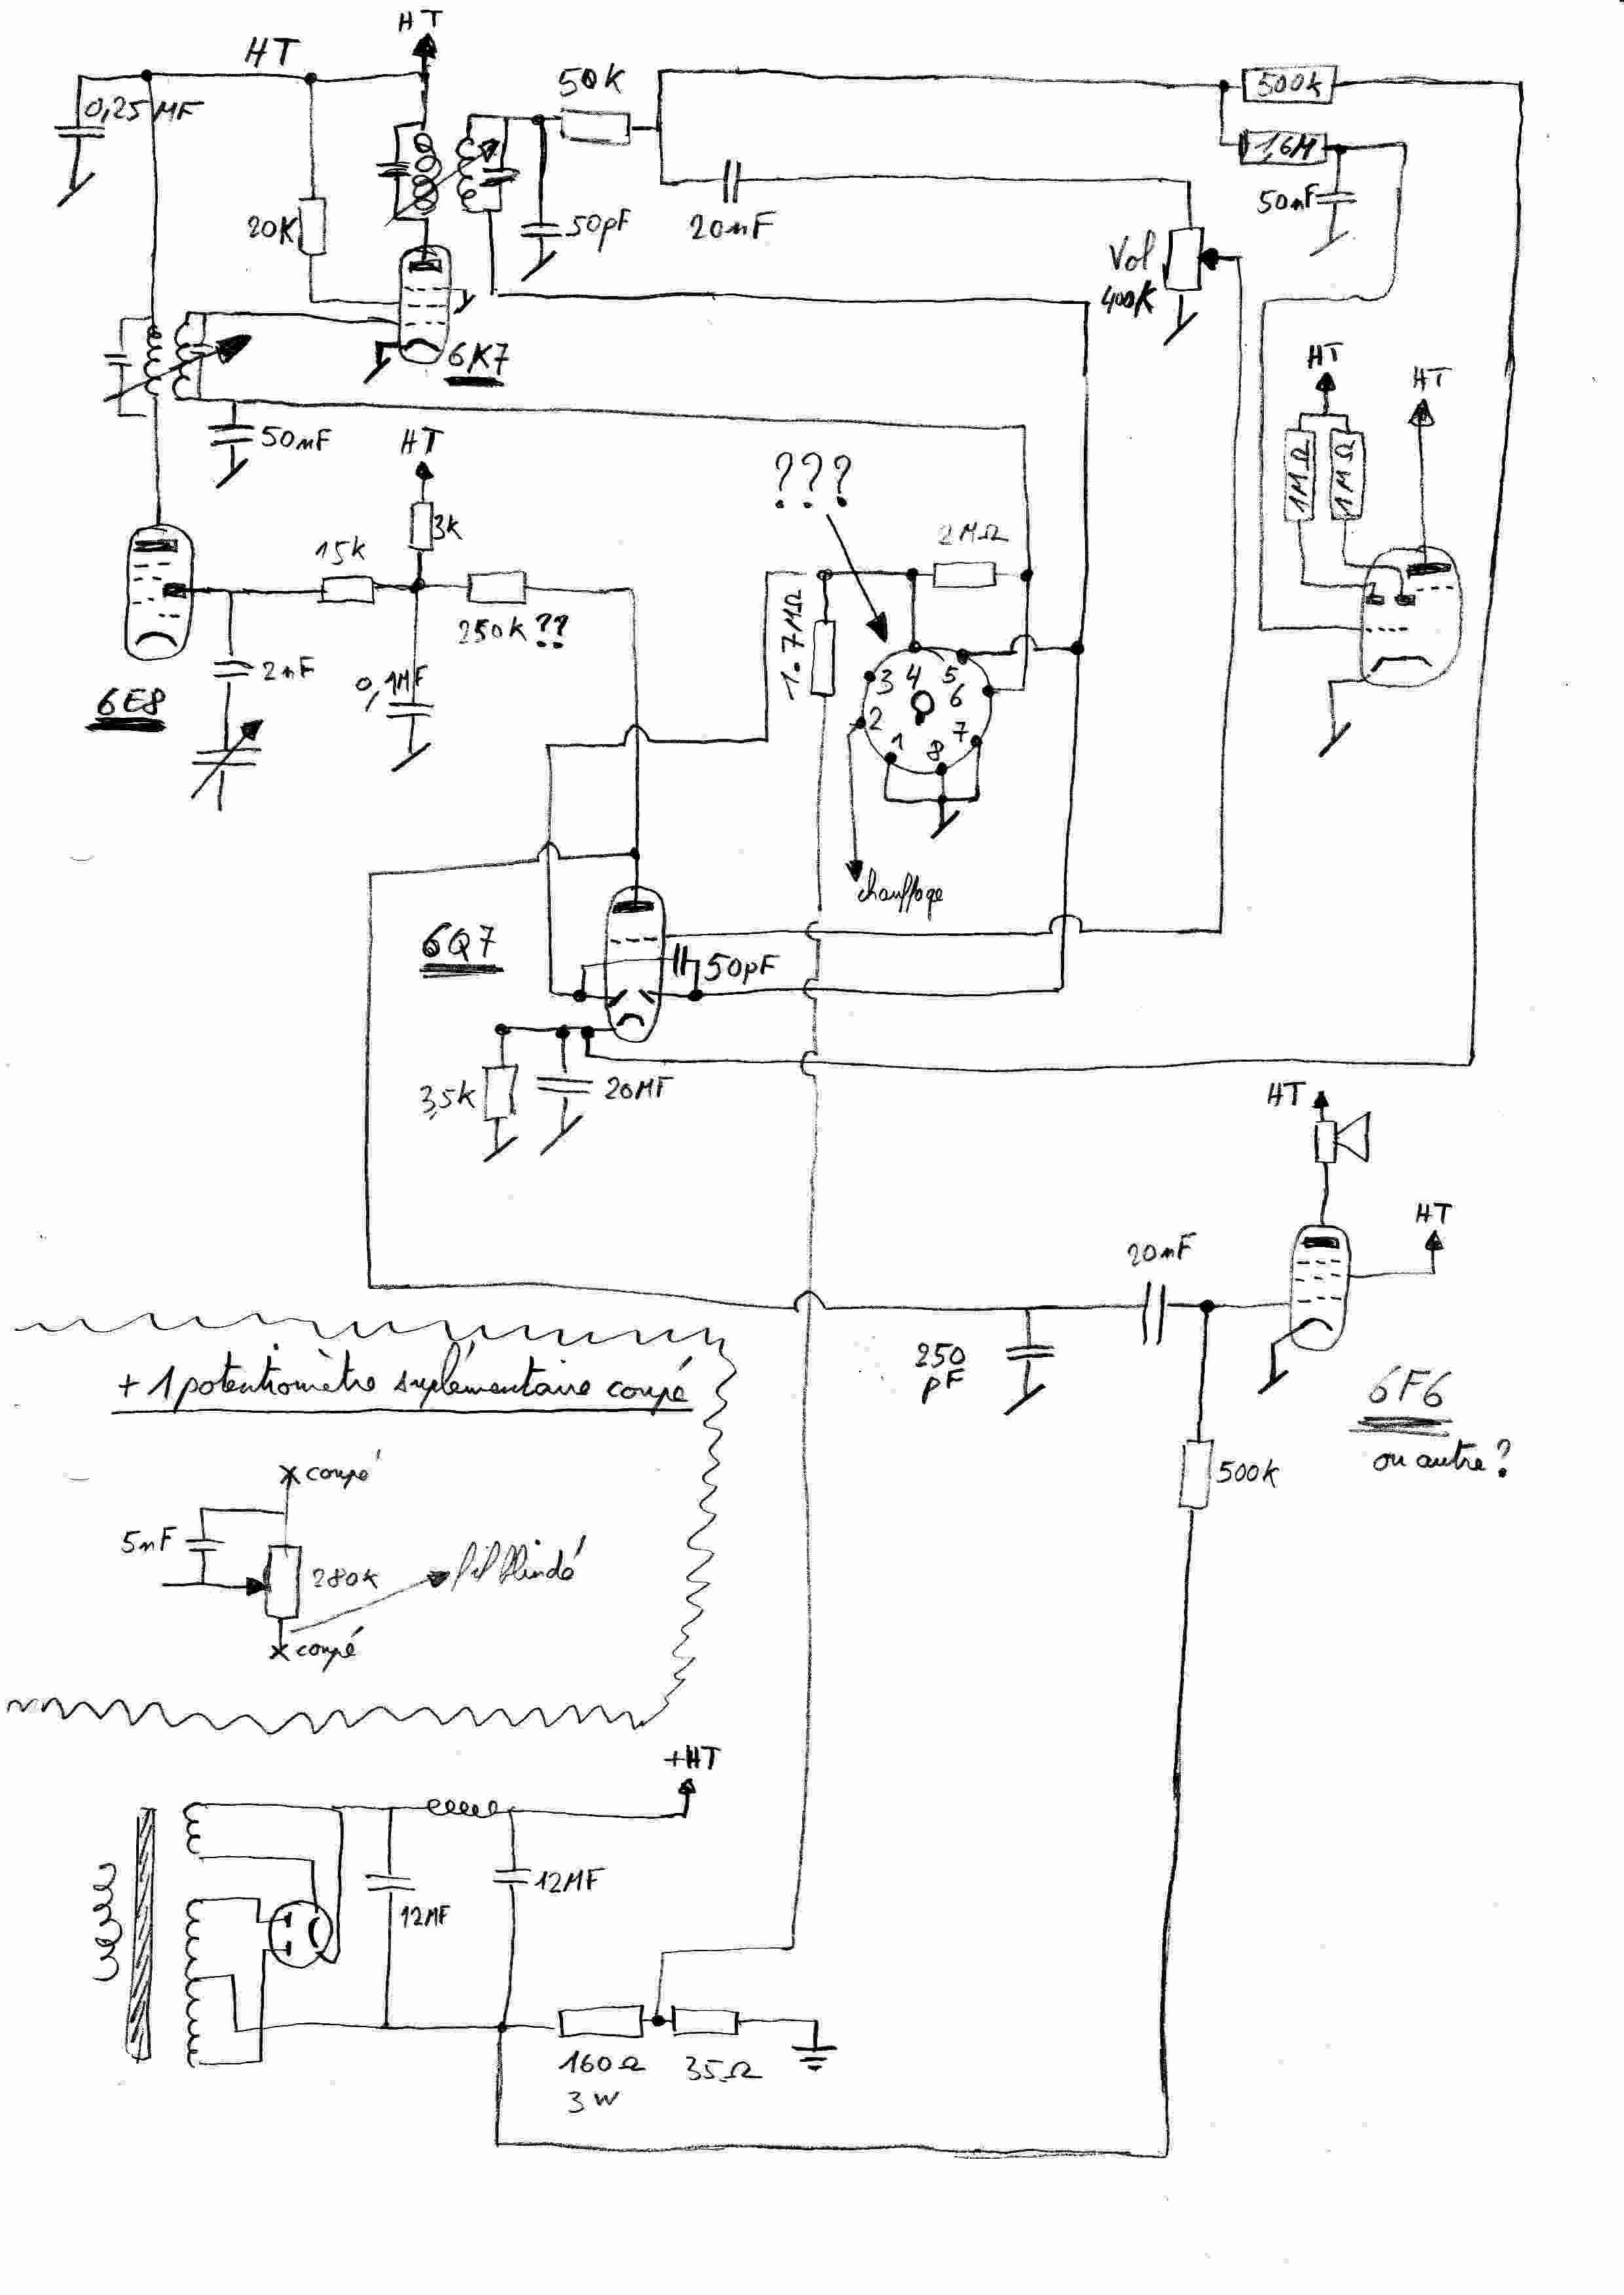 HT
HT
0,25 MF
50k
500k
1,6M
50nF
20K
50pF
20nF
Vol
400K
6K7
HT
HT
50nF
HT
???
1MΩ
1MΩ
3k
15k
2MΩ
250k??
1.7MΩ
2nF
0,1MF
6E8
3 4 5
6
2
1 8 7
chauffage
6Q7
50pF
3,5k
20MF
HT
HT
20nF
250
pF
6F6
ou autre?
+ 1 potentiomètre suplémentaire coupé
500k
coupé
5nF
280k
fil blindé
coupé
+HT
12MF
12MF
160Ω
3W
35Ω